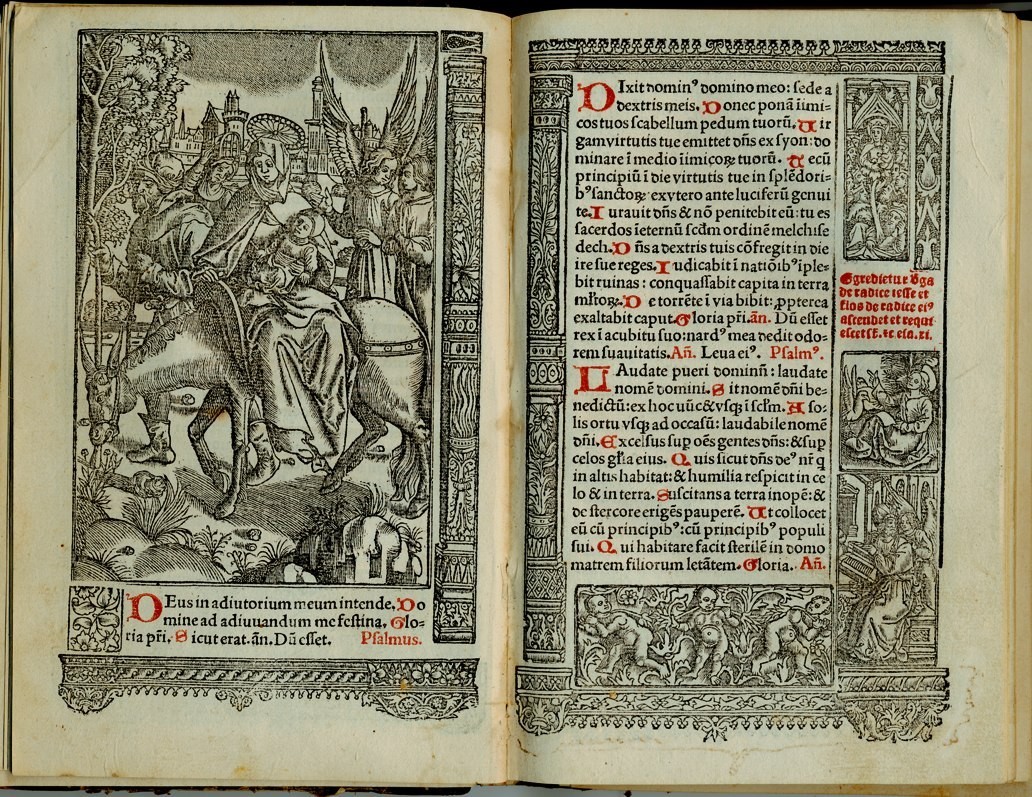 DEus in adiutorium meum intende, Do
mine ad adiuuandum me festina, Glo=
ria pr̄i. Sicut erat. añ. Dū esset. Psalmus.
DIxit domin⁹ domino meo: sede a
dextris meis. Donec ponā inimi=
cos tuos scabellum pedum tuorū. Vir
gam virtutis tue emittet dn̄s ex syon: do
minare ī medio inimicoꝝ tuorū. Tecū
principiū ī die virtutis tue in splēdori=
b⁹ sanctoꝝ exvtero ante luciferū genui
te. Iurauit dn̄s & nō penitebit eū: tu es
sacerdos īeternū scd̄m ordinē melchise
dech. Dn̄s a dextris tuis cōfregit in die
ire sue reges. Iudicabit ī natiōib⁹ īple=
bit ruinas: conquassabit capita in terra
ml̄toꝝ. De torrēte ī via bibit: ꝓpterea
exaltabit caput. Gloria pr̄i. añ. Dū esset
rex ī acubitu suo: nard⁹ mea dedit odo=
rem suauitatis. Añ. Leua ei⁹. Psalm⁹.
LAudate pueri dominū: laudate
nomē domini. Sit nomē dn̄i be=
nedictū: ex hoc nūc & vsqꝫ ī scl̄m. A so=
lis ortu vsqꝫ ad occasū: laudabile nomē
dn̄i. Excelsus sup oēs gentes dn̄s: & sup
celos gl̄ia eius. Quis sicut dn̄s de⁹ nr̄ q̄
in altis habitat: & humilia respicit in ce
lo & in terra. Suscitans a terra inopē: &
de stercore erigēs pauperē. Vt collocet
eū cū principib⁹: cū principib⁹ populi
sui. Qui habitare facit sterilē in domo
matrem filiorum letātem. Gloria. Añ.
Egredietur v̄ga
de radice iesse et
flos de radice ei⁹
ascendet et requi
escet sꝑ. ec. esa. xi.